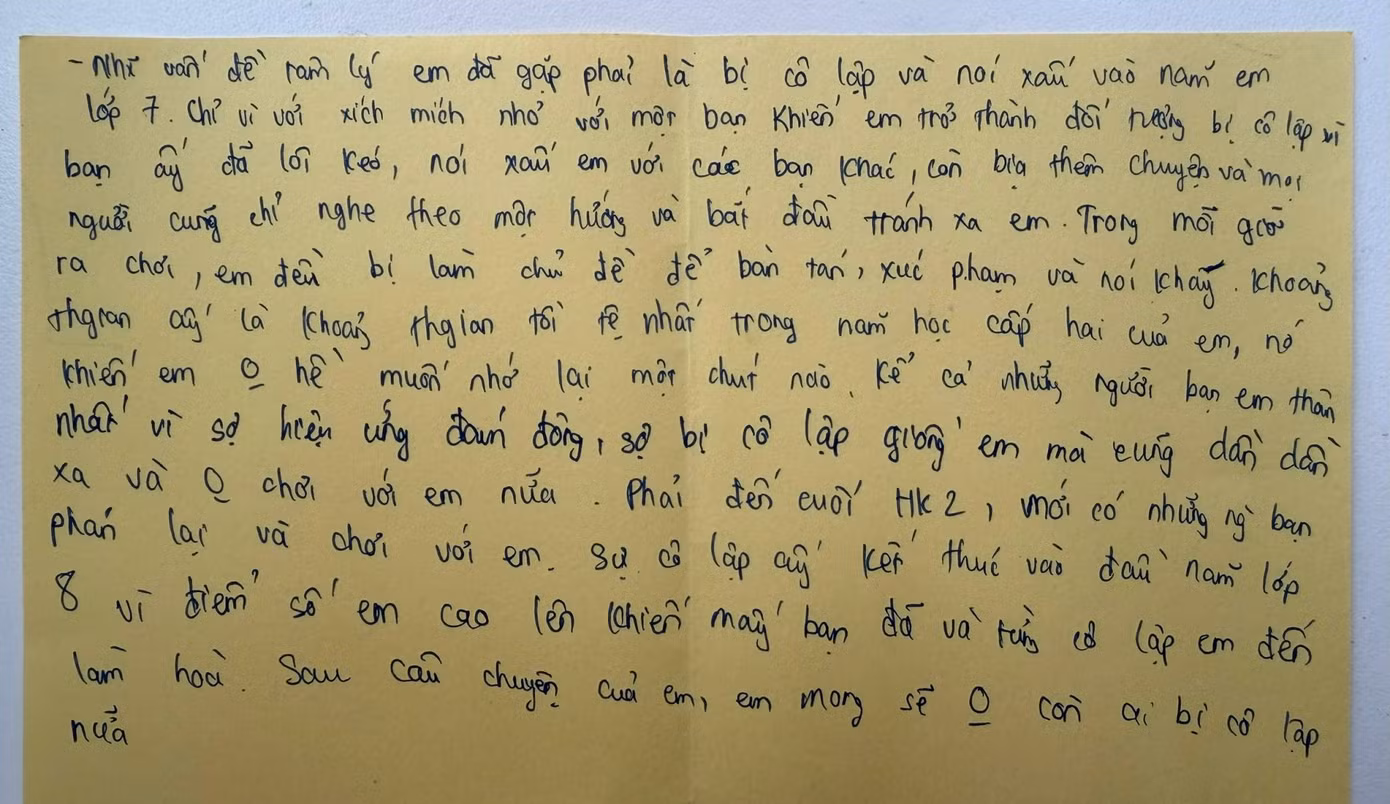 - Nhĩ vấn đề tâm lý em đã gặp phải là bị cô lập và nói xấu vào năm em
lớp 7. Chỉ vì với xích mích nhỏ với một bạn khiến em trở thành đối tượng bị cô lập vì
bạn ấy đã lôi kéo, nói xấu em với các bạn khác, còn bịa thêm chuyện và mọi
người cũng chỉ nghe theo một hướng và bắt đầu tránh xa em. Trong mỗi giờ
ra chơi, em đều bị làm chủ đề để bàn tán, xúc phạm và nói kháy. Khoảng
thgian ấy là khoảng thgian tồi tệ nhất trong năm học cấp hai của em, nó
khiến em O hề muốn nhớ lại một chút nào. Kể cả những người bạn em thân
nhất vì sợ hiệu ứng đám đông, sợ bị cô lập giống em mà cũng dần dần
xa và O chơi với em nữa. Phải đến cuối HK2, mới có những ng` bạn
phán lại và chơi với em. Sự cô lập ấy kết thúc vào đầu năm lớp
8 vì điểm số em cao lên khiến mấy bạn đã và từng cô lập em đến
làm hoà. Sau câu chuyện của em, em mong sẽ O còn ai bị cô lập
nữa